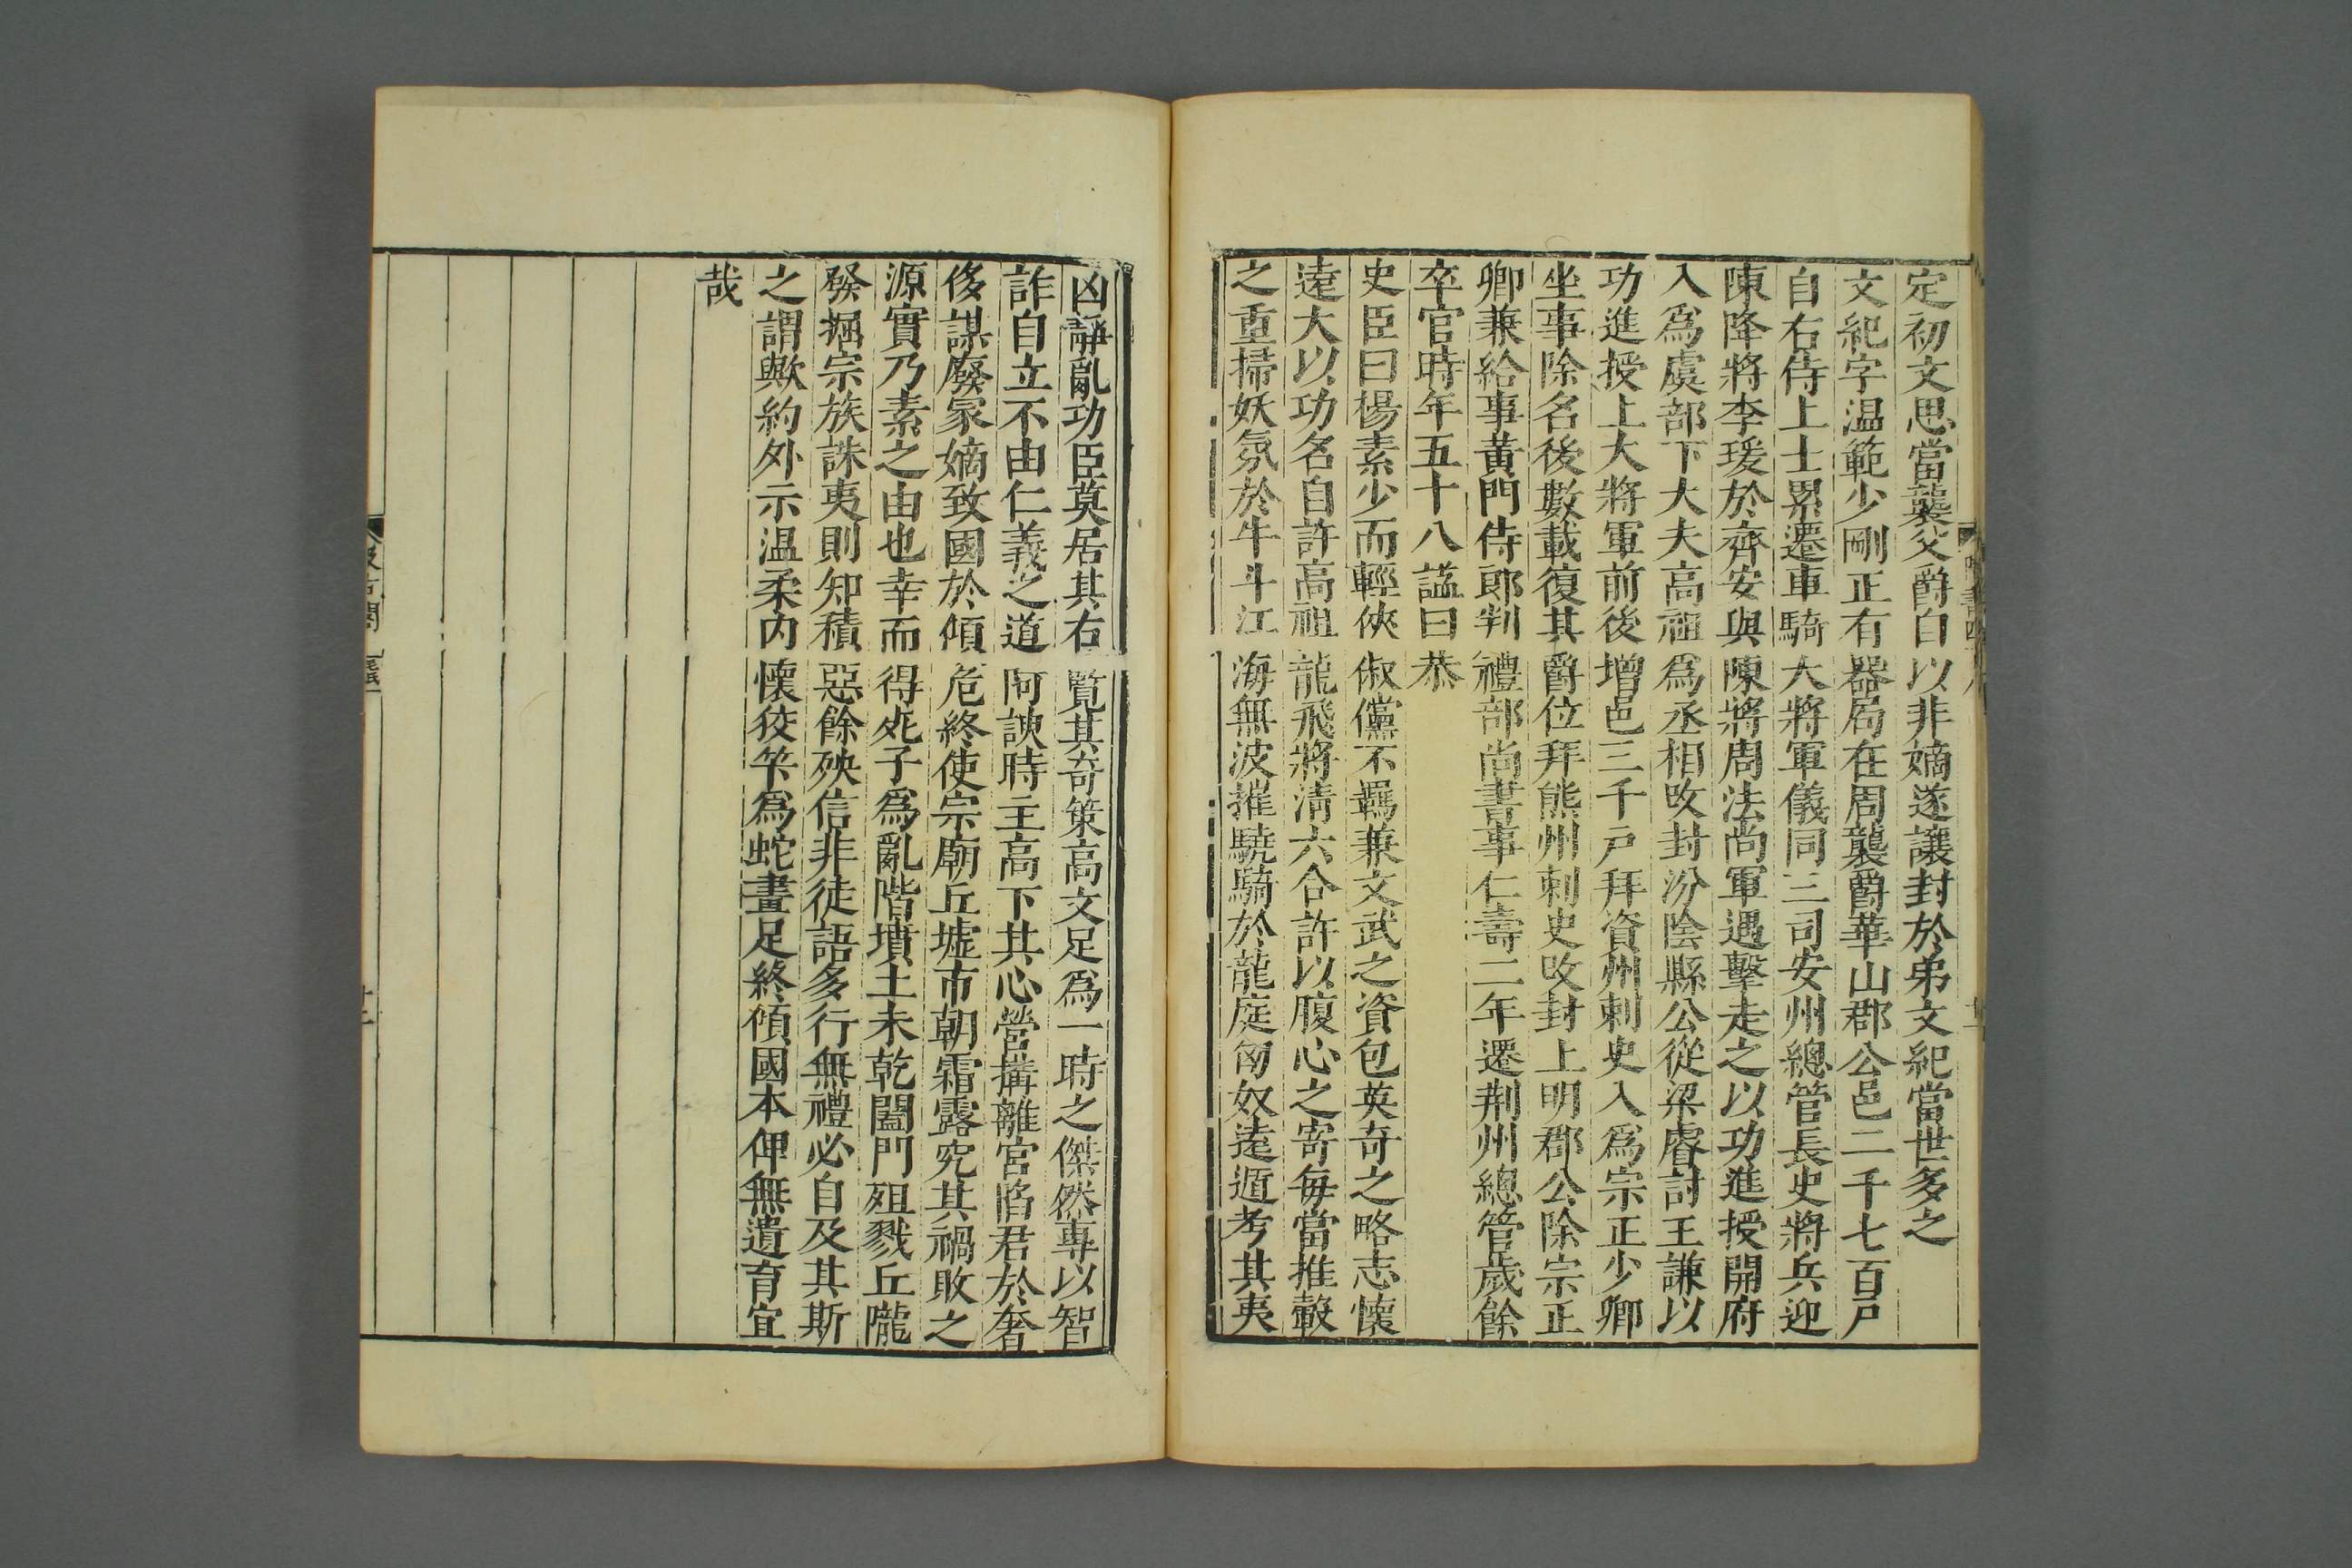 定初文思當襲父爵自以非嫡遂讓封於弟文紀當世多之
文紀字温範少剛正有器局在周襲爵華山郡公邑二千七百戸
自右侍上士累遷車騎大將軍儀同三司安州總管長史將兵迎
陳降將李瑗於齊安與陳將周法尚軍遇擊走之以功進授開府
入爲虞部下大夫高祖爲丞相攺封汾隂縣公從梁睿討王謙以
功進授上大將軍前後增邑三千戸拜資州刺史入爲宗正少卿
坐事除名後數載復其爵位拜熊州刺史攺封上明郡公除宗正
卿兼給事黄門侍郎判禮部尚書事仁壽二年遷荆州總管歲餘
卒官時年五十八諡曰恭
史臣曰楊素少而輕俠俶儻不羈兼文武之資包英竒之略志懷
逺大以功名自許高祖龍飛將清六合許以腹心之寄每當推轂
之重掃妖氛於牛斗江海無波摧驍騎於龍庭匈奴逺遁考其夷
凶靜亂功臣莫居其右覽其竒策高文足爲一時之傑然專以智
詐自立不由仁義之道阿諛時主高下其心營搆離宫陷君於奢
侈謀廢冢嫡致國於傾危終使宗廟丘墟市朝霜露究其禍敗之
源實乃素之由也幸而得死子爲亂階墳土未乾闔門殂戮丘隴
發掘宗族誅夷則知積惡餘殃信非徒語多行無禮必自及其斯
之謂歟約外示温柔内懷狡筭爲蛇畫足終傾國本俾無遺育宜
哉